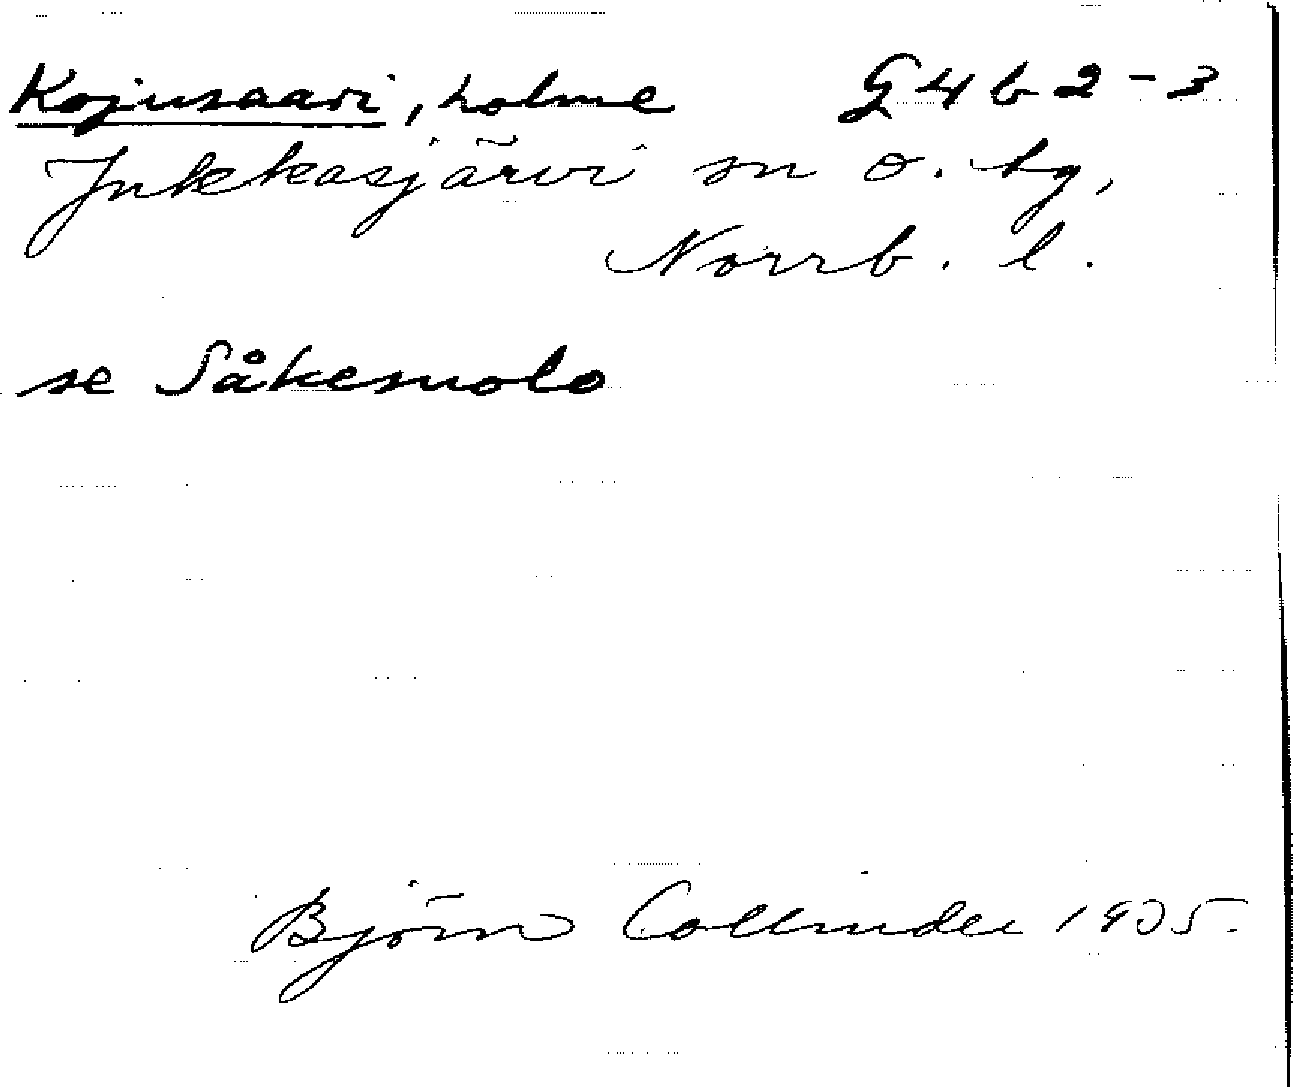 Kojusaari, holme G 4 b 2-3
Jukkasjärvi sn o. tg,
Norrb. l.
se Såkesuolo
Björn Collinder 1905.